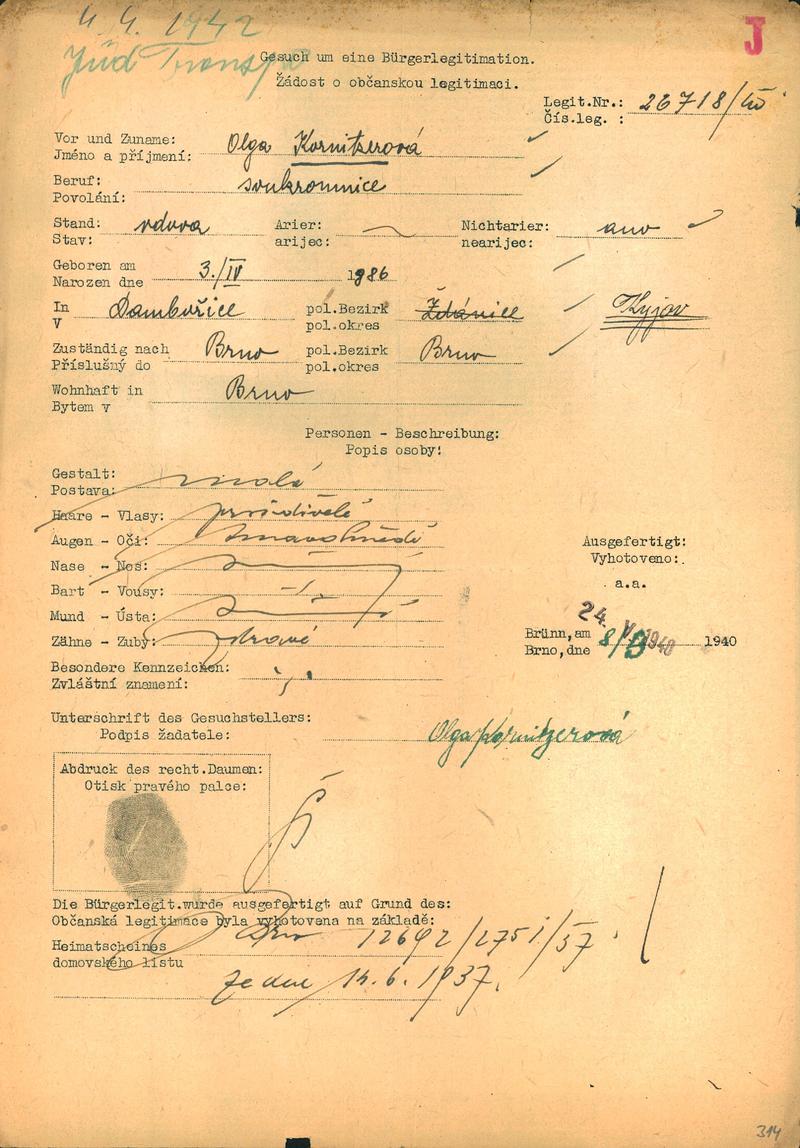 4. 4. 1942
J
Jüd Transp
Gesuch um eine Bürgerlegitimation.
Žádost o občanskou legitimaci.
Legit.Nr.: 26718/40
Čís.leg. :
Vor und Zuname: Olga Kornitzerová
Jméno a příjmení:
Beruf: soukromnice
Povolání:
Stand: vdova Arier: Nichtarier: ano
Stav: arijec: nearijec:
Geboren am 3./IV 1886
Narozen dne
In Dambořice pol.Bezirk Ždánice Kyjov
V pol.okres
Zuständig nach Brno pol.Bezirk Brno
Příslušný do pol.okres
Wohnhaft in Brno
Bytem v
Personen - Beschreibung:
Popis osoby:
Gestalt: malá
Postava:
Haare - Vlasy: prošedivělé
Augen - Oči: tmavohnědé
Ausgefertigt:
Vyhotoveno:
Nase - Nos:
a.a.
Bart - Vousy: -/-
Mund - Ústa:
24. V. 1940
Zähne - Zuby: zdravé
Brünn, am 8/5 1940
Brno, dne
Besondere Kennzeichen:
Zvláštní znamení:
Unterschrift des Gesuchstellers:
Podpis žadatele: Olga Kornitzerová
Abdruck des recht.Daumen:
Otisk pravého palce:
Die Bürgerlegit.wurde ausgefertigt auf Grund des:
Občanská legitimace byla vyhotovena na základě:
Heimatscheines Brno 12692/2751/37
domovského listu
ze dne 14.6.1937.
314